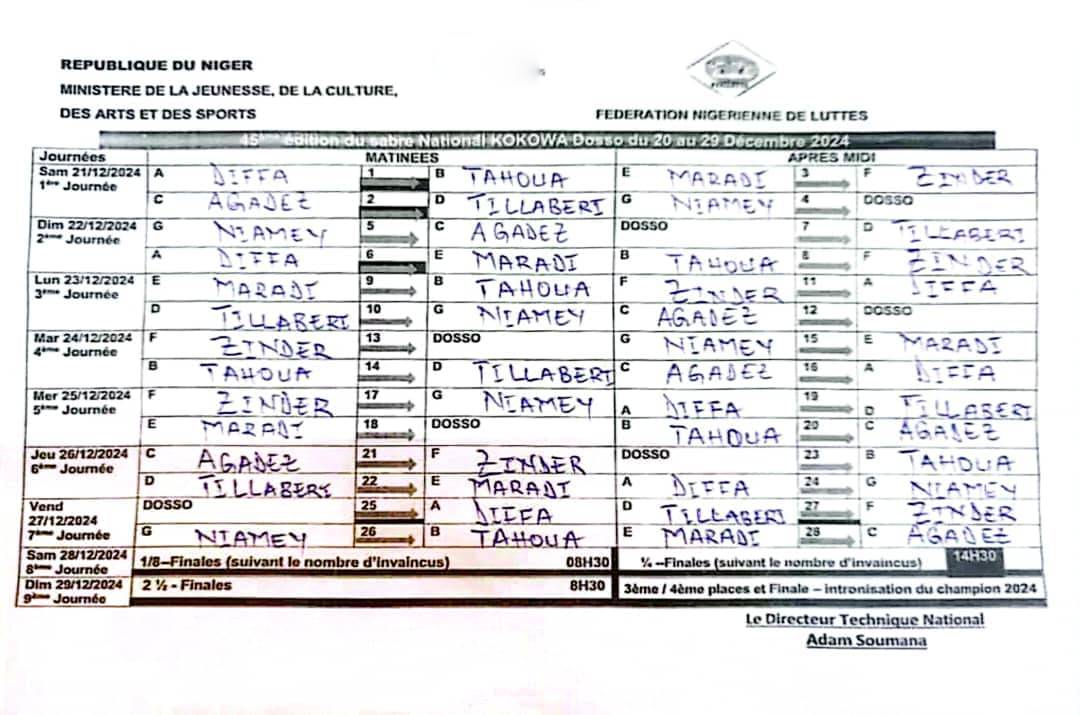 REPUBLIQUE DU NIGER
MINISTERE DE LA JEUNESSE, DE LA CULTURE,
DES ARTS ET DES SPORTS
FEDERATION NIGERIENNE DE LUTTES
45ème édition du sabre National KOKOWA Dosso du 20 au 29 Décembre 2024
Journées MATINEES APRES MIDI
Sam 21/12/2024 A DIFFA 1 B TAHOUA E MARADI 3 F ZINDER
1ère Journée C AGADEZ 2 D TILLABERI G NIAMEY 4 DOSSO
Dim 22/12/2024 G NIAMEY 5 C AGADEZ DOSSO 7 D TILLABERI
2ème Journée A DIFFA 6 E MARADI B TAHOUA 8 F ZINDER
Lun 23/12/2024 E MARADI 9 B TAHOUA F ZINDER 11 A DIFFA
3ème Journée D TILLABERI 10 G NIAMEY C AGADEZ 12 DOSSO
Mar 24/12/2024 F ZINDER 13 DOSSO G NIAMEY 15 E MARADI
4ème Journée B TAHOUA 14 D TILLABERI C AGADEZ 16 A DIFFA
Mer 25/12/2024 F ZINDER 17 G NIAMEY A DIFFA 19 D TILLABERI
5ème Journée E MARADI 18 DOSSO B TAHOUA 20 C AGADEZ
Jeu 26/12/2024 C AGADEZ 21 F ZINDER DOSSO 23 B TAHOUA
6ème Journée D TILLABERI 22 E MARADI A DIFFA 24 G NIAMEY
Vend 27/12/2024 DOSSO 25 A DIFFA D TILLABERI 27 F ZINDER
7ème Journée G NIAMEY 26 B TAHOUA E MARADI 28 C AGADEZ
Sam 28/12/2024 1/8–Finales (suivant le nombre d'invaincus) 08H30 ¼ –Finales (suivant le nombre d'invaincus) 14H30
8ème Journée
Dim 29/12/2024 2 ½ - Finales 8H30 3ème / 4ème places et Finale – intronisation du champion 2024
9ème Journée
Le Directeur Technique National
Adam Soumana